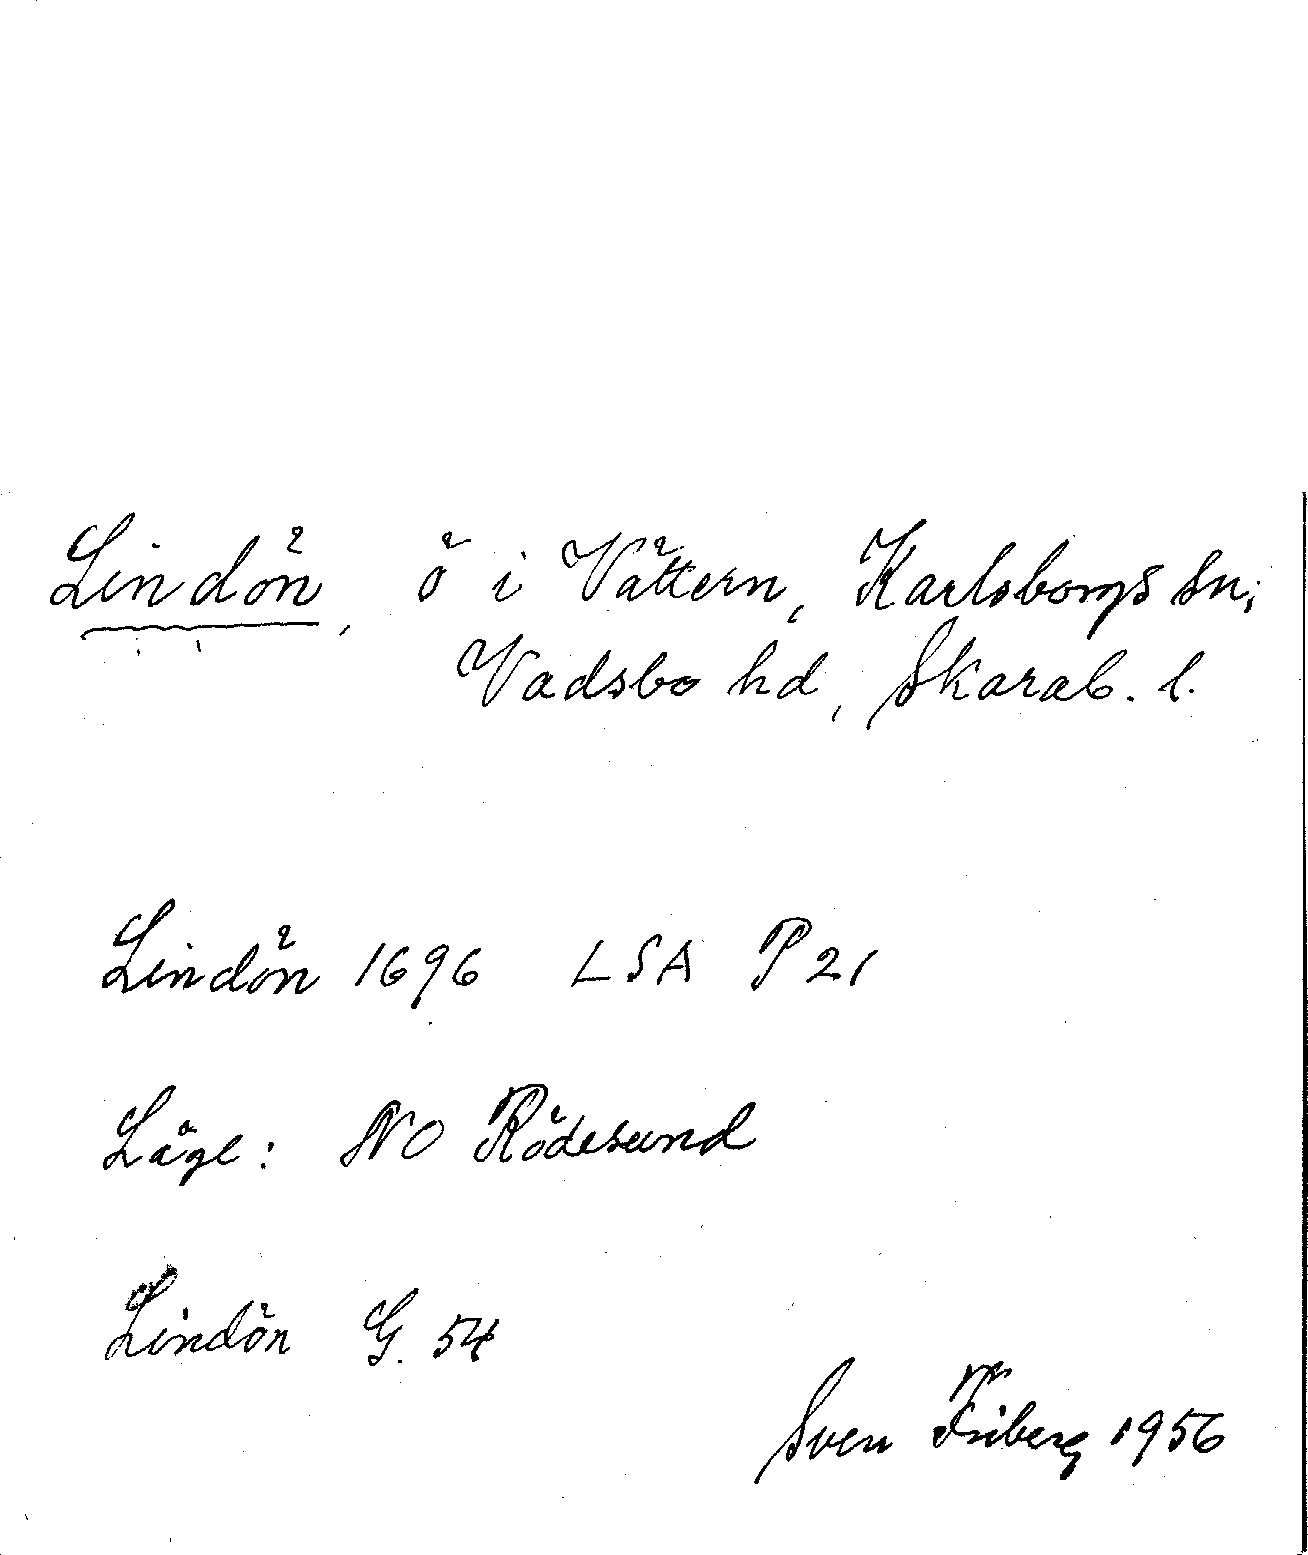 Lindön, ö i Vättern, Karlsborgs sn,
Vadsbo hd, Skarab. l.
Lindön 1696 LSA P 21
Läge: NO Rödesund
Lindön G. 54
Sven Friberg 1956